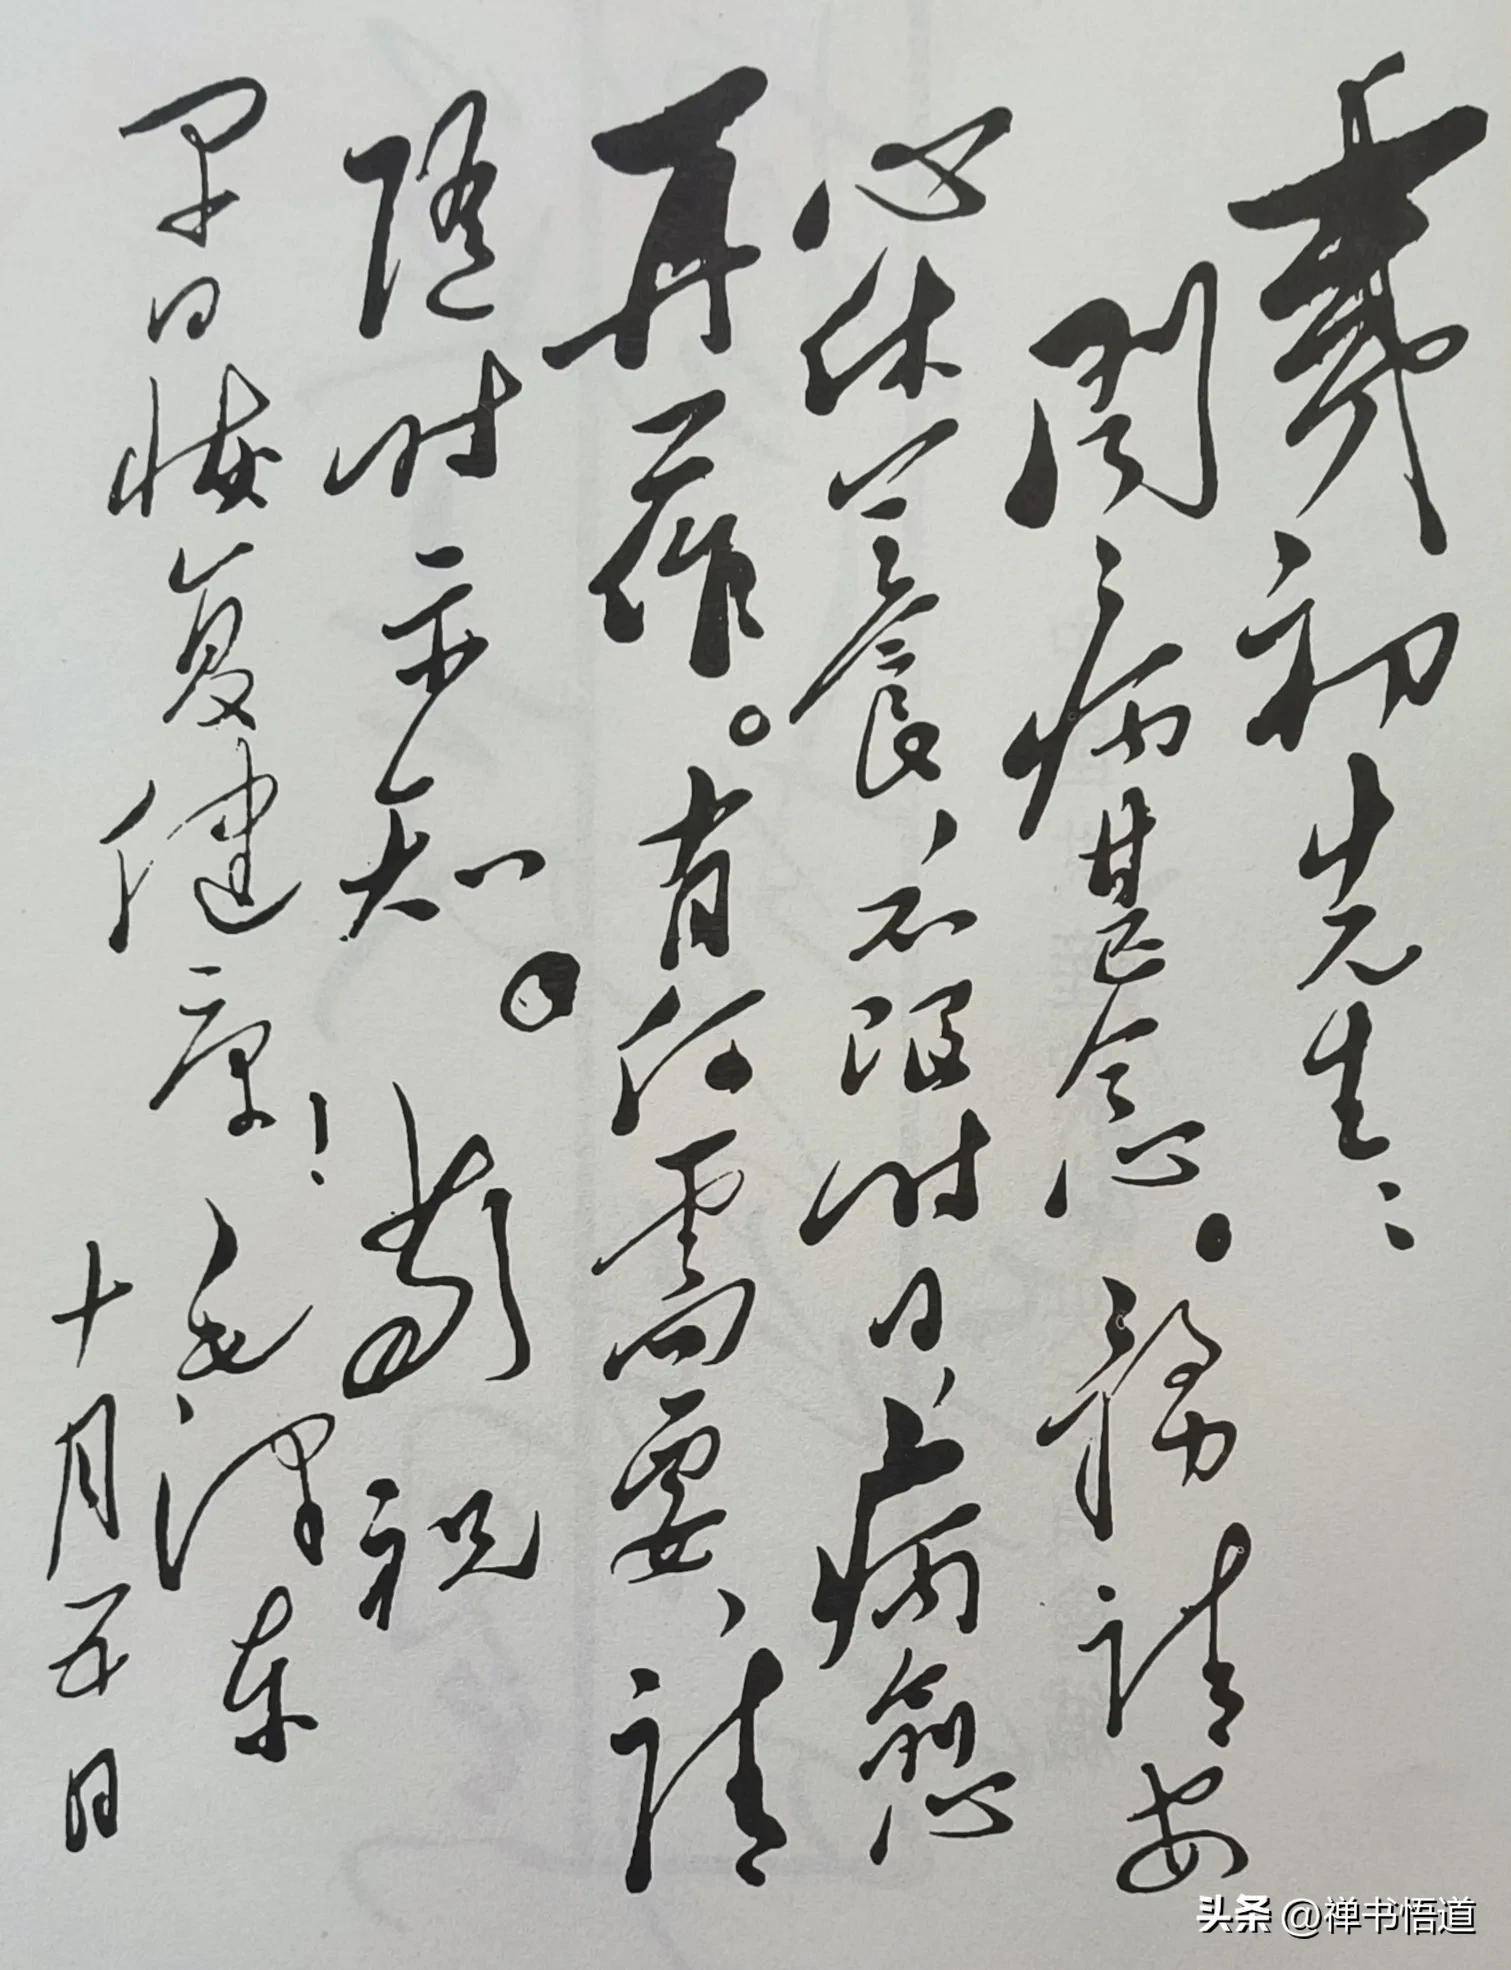 彝初先生：
闻病甚念。务请安
心休养，不限时日，病愈
再作。有何需要，请
随时示知。敬祝
早日恢复健康！
毛泽东
十月五日
头条 @禅书悟道